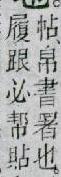 帖、帛書署也。
履跟必幇貼也